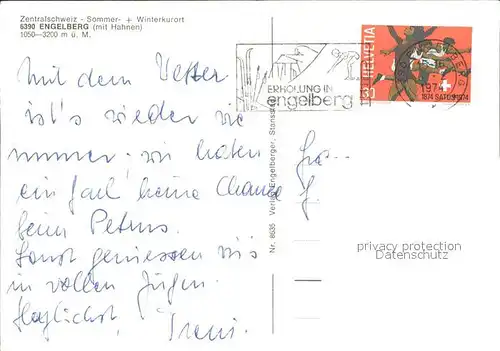 Zentralschweiz - Sommer- + Winterkurort
6390 ENGELBERG (mit Hahnen)
1050—3200 m ü. M.
ERHOLUNG IN
engelberg
HELVETIA
30
1974
1874 SATUS 1974
Mit dem Wetter
ist's wieder wie
immer - wir haben
ein Mal keine Chance
beim Petrus.
Sonst geniessen wir's
in vollen Zügen.
Herzlichst,
Nr. 8635 Verlag Engelberger, Stansstad
privacy protection
Datenschutz